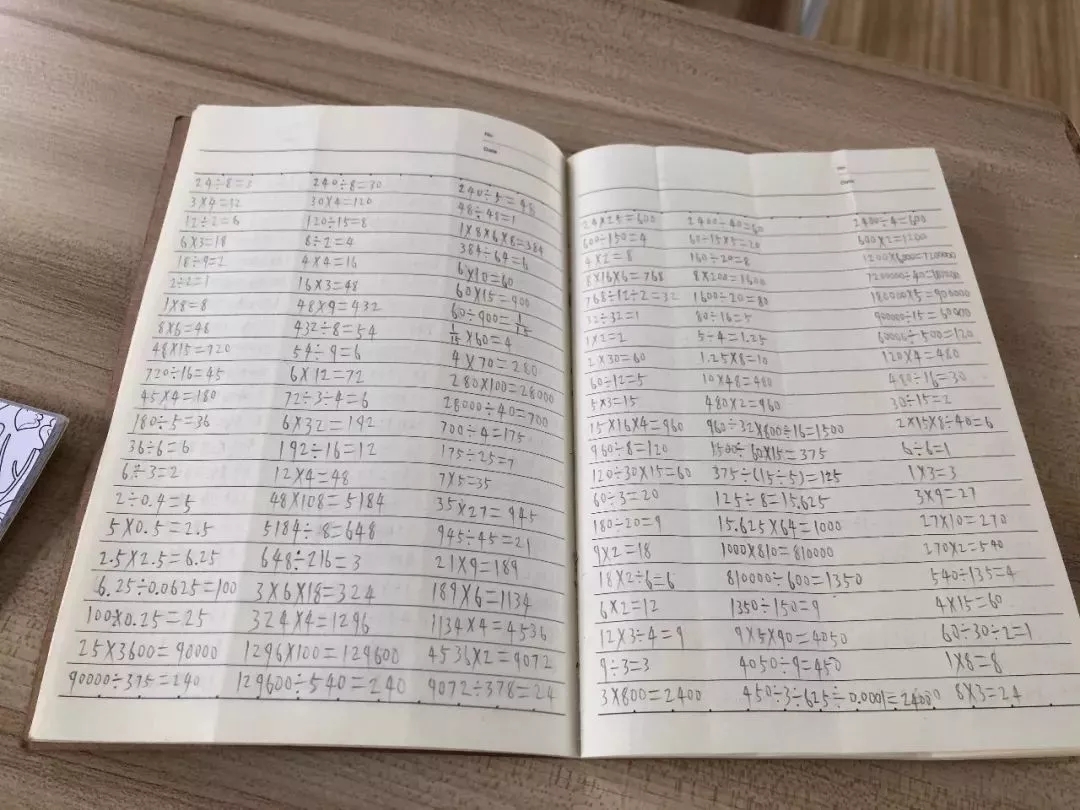 No.
Date
24÷8=3
3×4=12
12÷2=6
6×3=18
18÷9=2
2÷2=1
1×8=8
8×6=48
48×15=720
720÷16=45
45×4=180
180÷5=36
36÷6=6
6÷3=2
2÷0.4=5
5×0.5=2.5
2.5×2.5=6.25
6.25÷0.0625=100
100×0.25=25
25×3600=90000
90000÷375=240
240÷8=30
30×4=120
120÷15=8
8÷2=4
4×4=16
16×3=48
48×9=432
432÷8=54
54÷9=6
6×12=72
72÷3÷4=6
6×32=192
192÷16=12
12×4=48
48×108=5184
5184÷8=648
648÷216=3
3×6×18=324
324×4=1296
1296×100=129600
129600÷540=240
240÷5=48
48÷48=1
1×8×6×8=384
384÷64=6
6×10=60
60×15=900
60÷900=1/15
1/15×60=4
4×70=280
280×100=28000
28000÷40=700
700÷4=175
175÷25=7
7×5=35
35×27=945
945÷45=21
21×9=189
189×6=1134
1134×4=4536
4536×2=9072
9072÷378=24
Date
24×25=600
600÷150=4
4×2=8
8×16×6=768
768÷12÷2=32
32÷32=1
1×2=2
2×30=60
60÷12=5
5×3=15
15×16×4=960
960÷8=120
120÷30×15=60
60÷3=20
180÷20=9
9×2=18
18×2÷6=6
6×2=12
12×3÷4=9
9÷3=3
3×800=2400
2400÷40=60
60÷15×5=20
160÷20=8
8×200=1600
1600÷20=80
80÷16=5
5÷4=1.25
1.25×8=10
10×48=480
480×2=960
960÷32×800÷16=1500
1500÷60×15=375
375÷(15÷5)=125
125÷8=15.625
15.625×64=1000
1000×810=810000
810000÷600=1350
1350÷150=9
9×5×90=4050
4050÷9=450
450÷3÷625÷0.0001=2400
2400÷4=600
600×2=1200
1200×6000=7200000
7200000÷40=180000
180000×5=900000
900000÷15=60000
60000÷500=120
120×4=480
480÷16=30
30÷15=2
2×15×8÷40=6
6÷6=1
1×3=3
3×9=27
27×10=270
270×2=540
540÷135=4
4×15=60
60÷30÷2=1
1×8=8
8×3=24